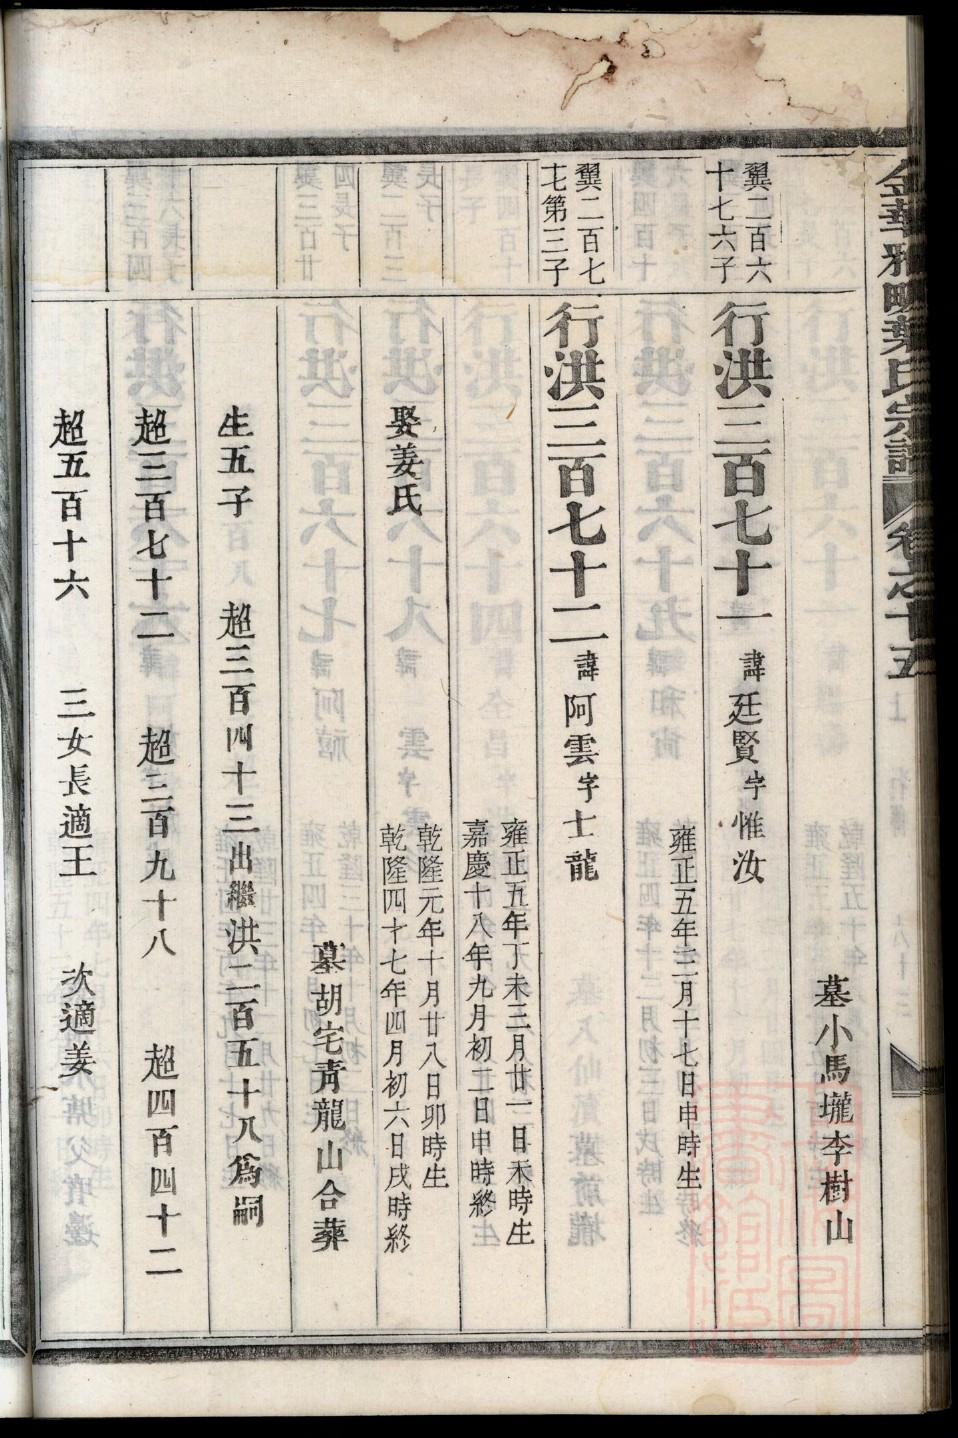 金華雅畈葉氏宗譜 卷之十五
墓小馬壠李樹山
翼二百六
十七六子
行洪三百七十一 諱廷賢字惟汝
雍正五年二月十七日申時生
翼二百七
七第三子
行洪三百七十二 諱阿雲字士龍
雍正五年丁未三月廿一日未時生
嘉慶十八年九月初二日申時終
娶姜氏
乾隆元年十月廿八日卯時生
乾隆四十七年四月初六日戌時終
墓胡宅靑龍山合葬
生五子 超三百四十三出繼洪二百五十八爲嗣
超三百七十二 超三百九十八 超四百四十二
超五百十六 三女長適王 次適姜